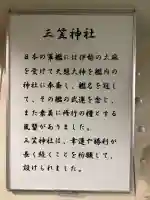 三笠神社
日本の軍艦には伊勢の大麻
を受けて天照大神を艦内の
神社に奉斎し、艦名を冠し
て、その艦の武運を念じ、
また東郷に

また乗員に修行の糧とする
風習がありました。
三笠神社は、幸運や勝利が
長く続くことを祈願して、
設けられました。